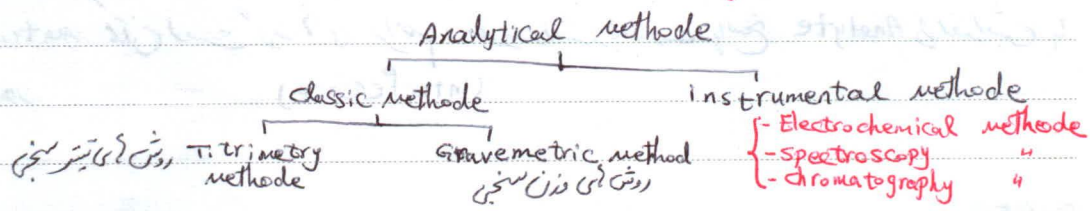 Analytical methode
classic methode
instrumental methode
روش های تیتر سنجی Titrimetry methode
Gravemetric method
روش های وزن سنجی
- Electrochemical methode
- spectroscopy "
- chromatography "